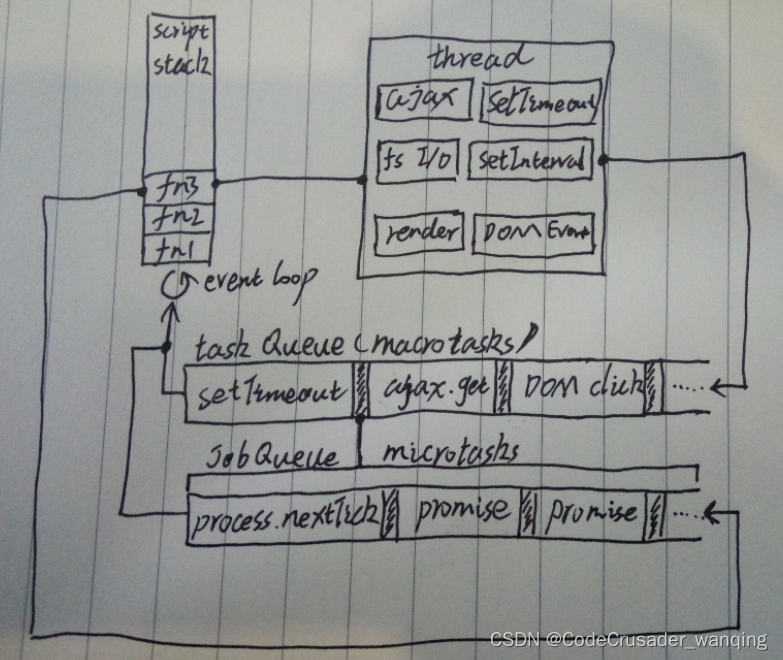 script
stack
fn3
fn2
fn1
event loop
thread
ajax
setTimeout
fs I/O
setInterval
render
DOM Event
task Queue (macrotasks)
setTimeout
ajax.get
DOM click
.....
Job Queue
microtasks
process.nextTick
promise
promise
.....
CSDN @CodeCrusader_wanqing